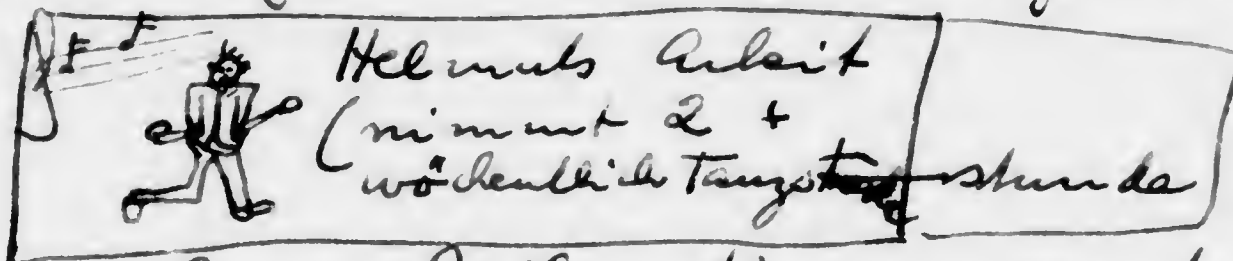 Helmuts Arbeit
(nimmt 2 +
wöchentlich Tanzstunde